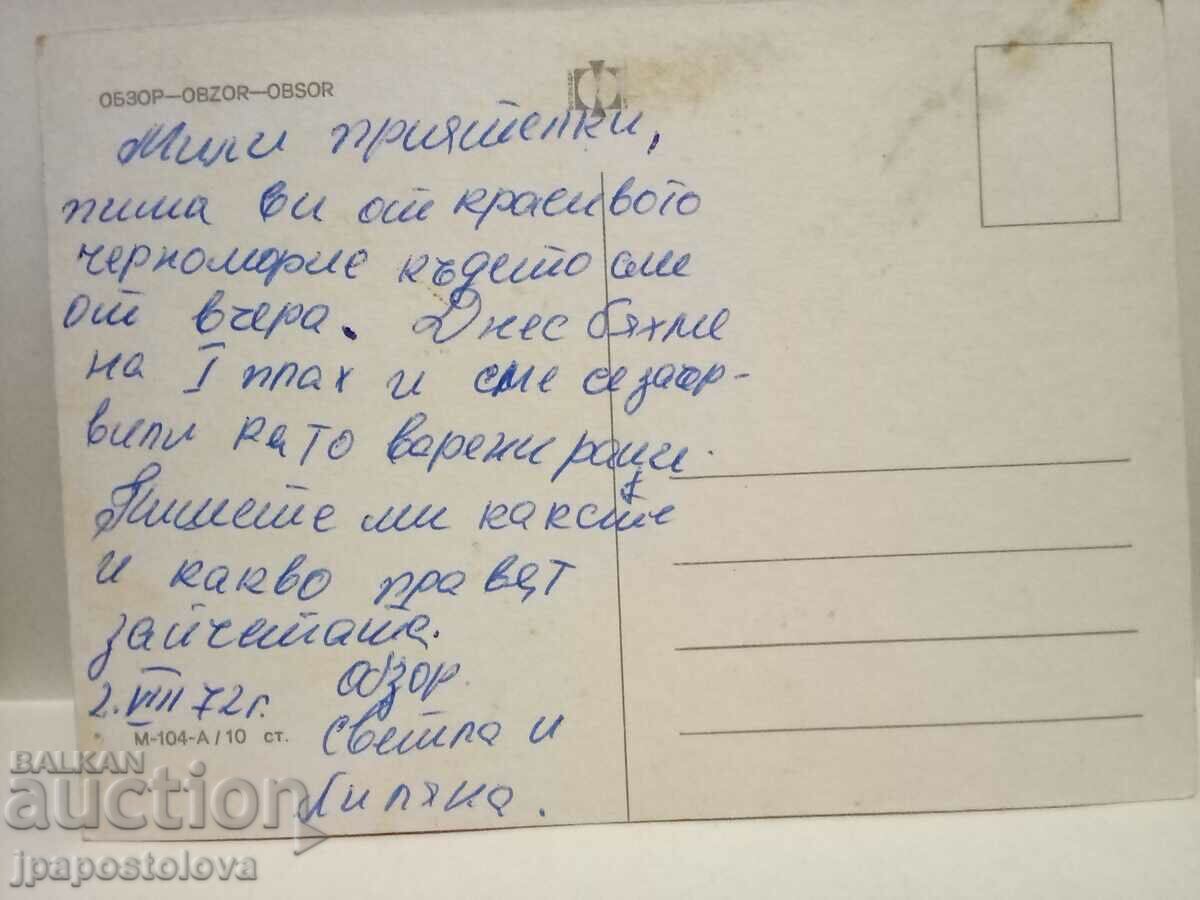 ОБЗОР—OBZOR—OBSOR
Мили приятелки,
пиша ви от красивото
черноморие където сме
от вчера. Днес бяхме
на I плаж и сме се зачер-
вили като варени раци.
Пишете ми как сте
и какво правят
зайчетата.
2.VIII 72 г. Обзор.
Светла и
Лиляна.
М-104-А/10 ст.
BALKAN
auction
jpapostolova